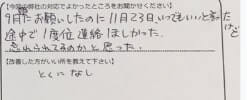 ◇今回の弊社の対応でよかったところをお聞かせください】
9月にお願いしたのに11月23日、いつでもいいと言ったけど
途中で1度位連絡ほしかった。
忘れられてるのかと思った。
【改善した方がいい所を教えて下さい】
とくになし